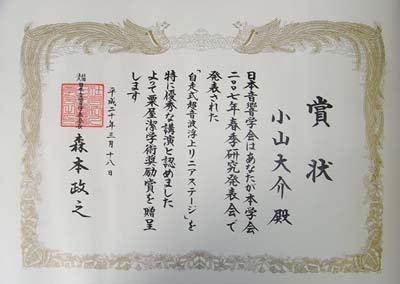 賞状
小山大介 殿
日本音響学会はあなたが本学会
二〇〇七年春季研究発表会で
発表された
「自走式超音波浮上リニアステージ」を
特に優秀な講演と認めました
よって粟屋潔学術奨励賞を贈呈
します
平成二十年三月十八日
森本政之